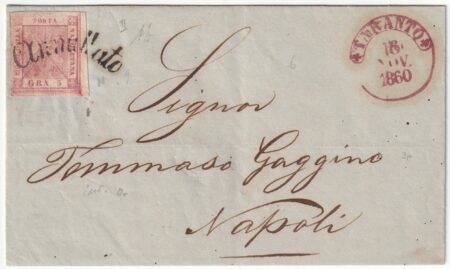 POSTA
NAPOLETANA
GRA 5
Annullato
TARANTO
18
NOV.
1860
Signor
Tommaso Gaggino
Napoli